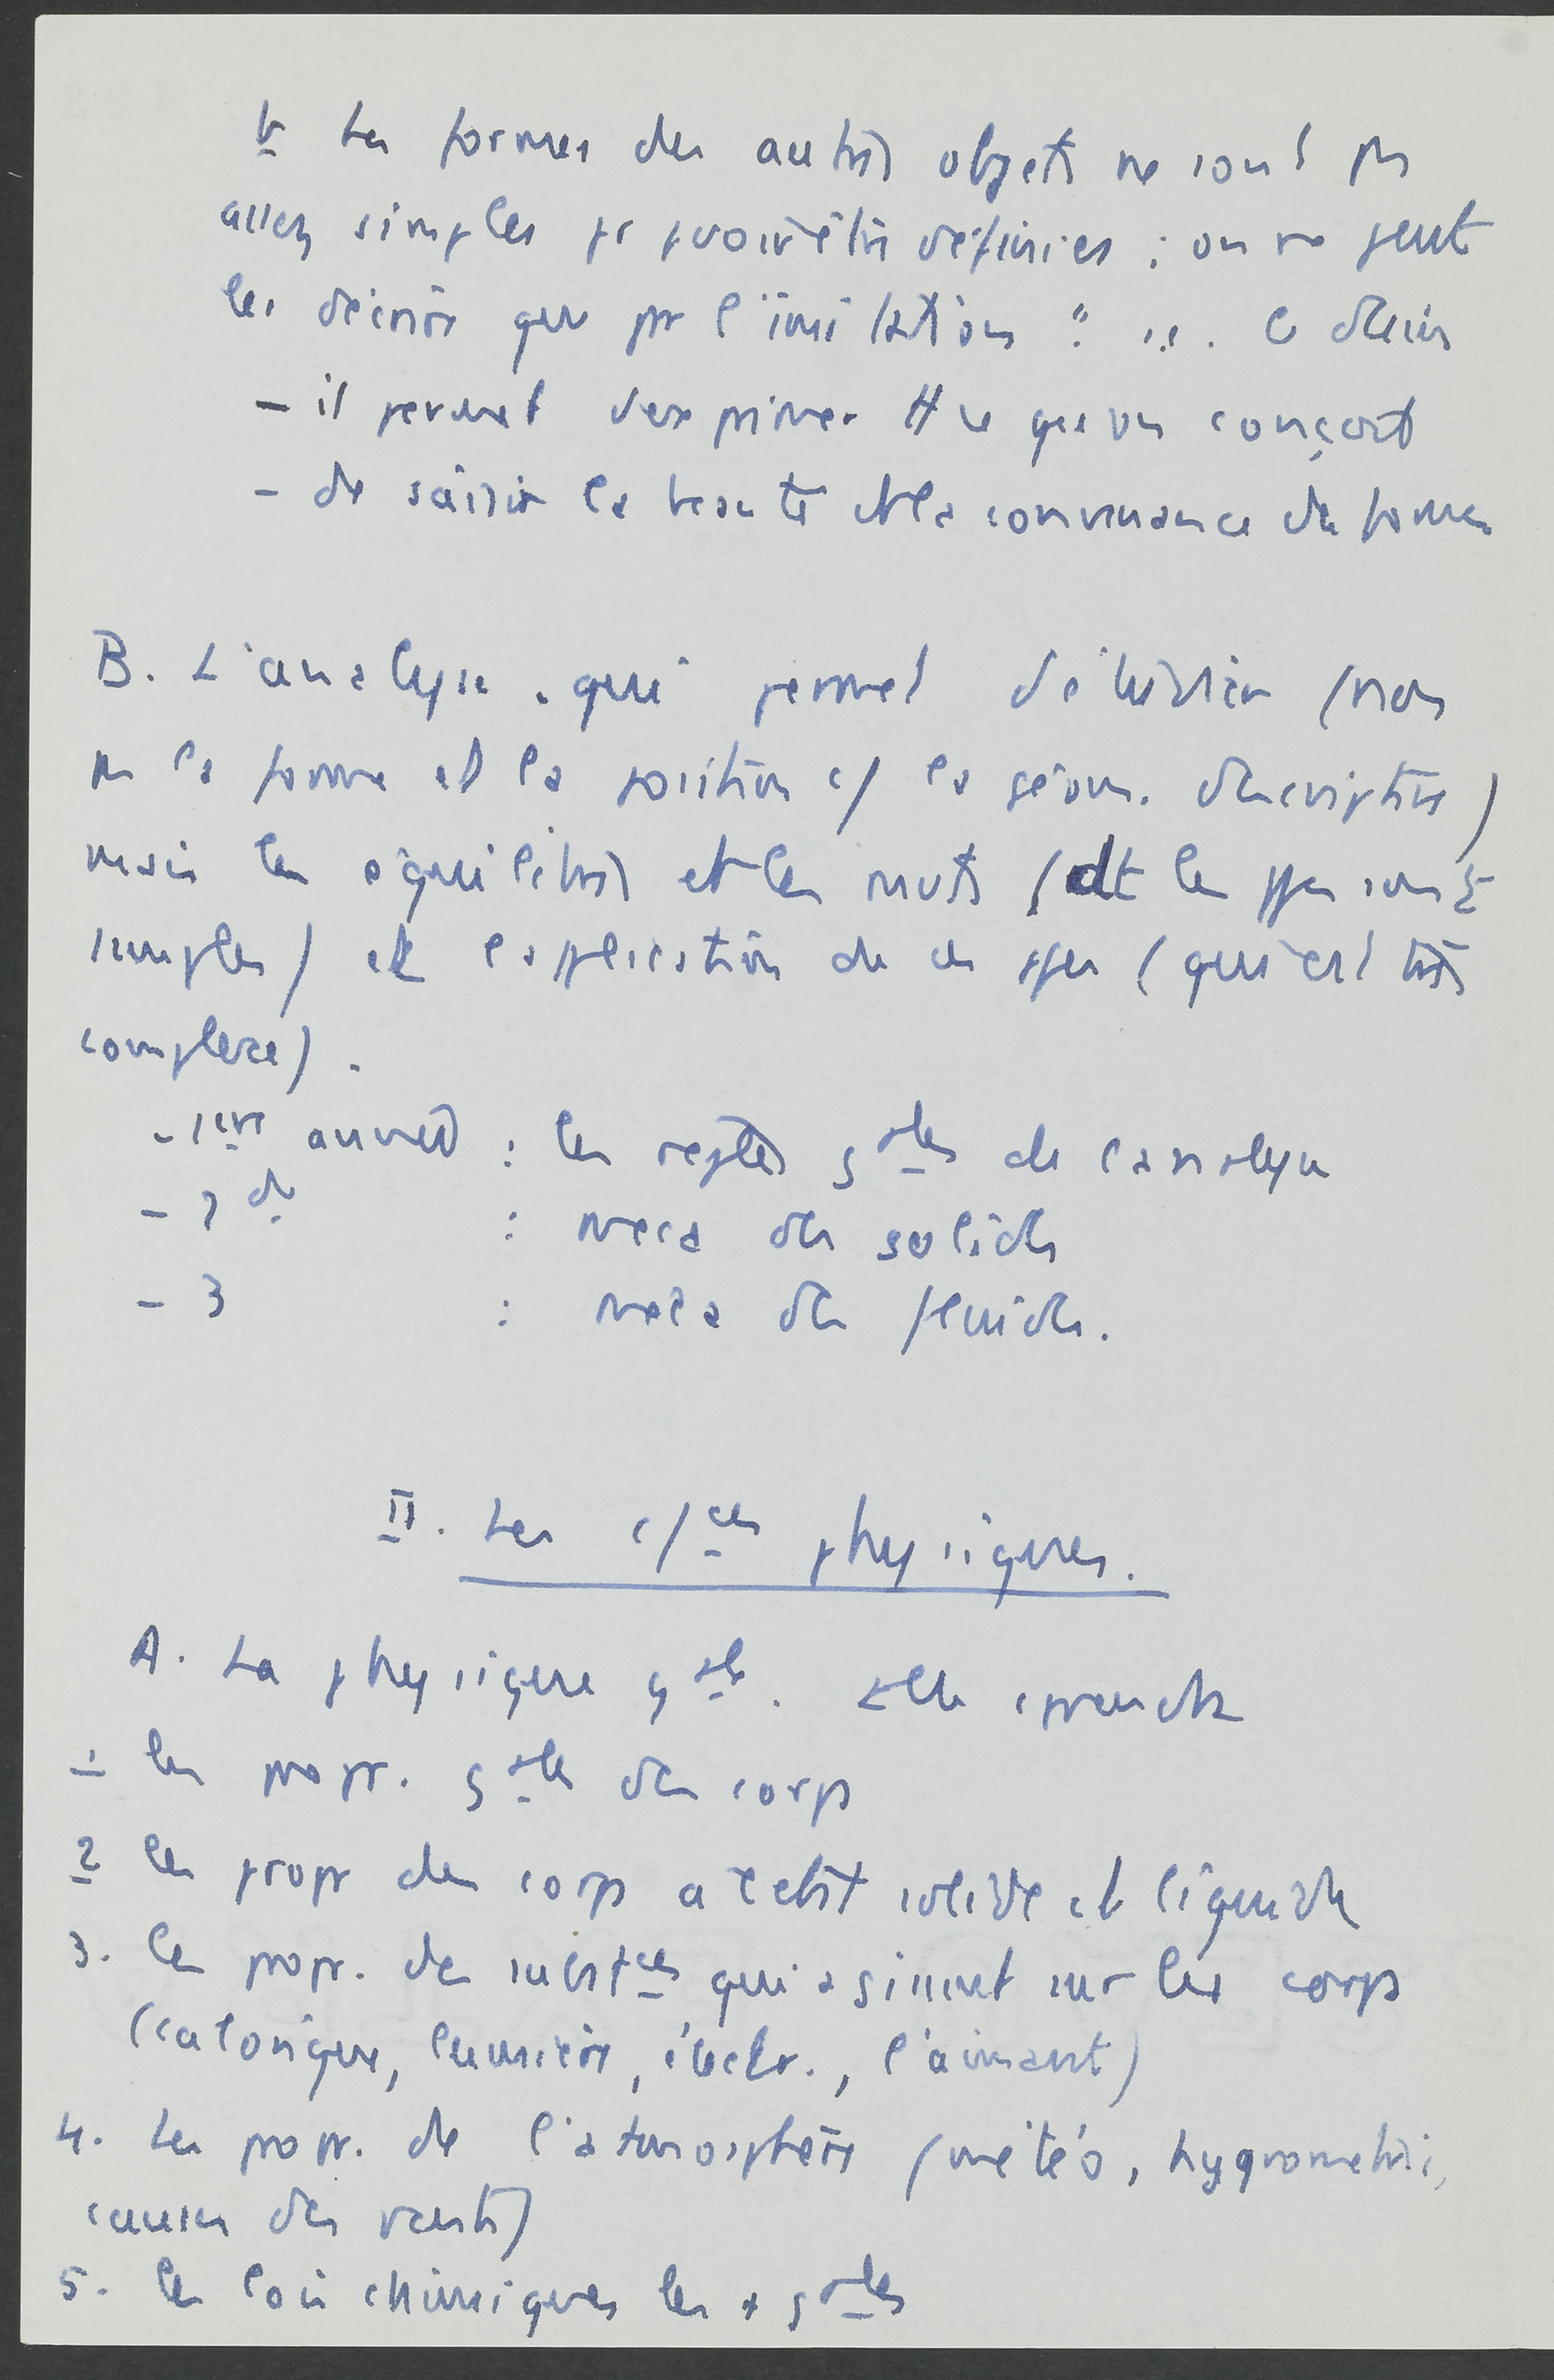 b Les formes des autres objets ne sont pas
assez simples pr pouvoir être définies ; on ne peut
les décrire que par l'imitation : ... le dessin
- il permet d'exprimer tt ce que l'on conçoit
- de saisir la beauté et la convenance des formes
B. L'analyse . qui permet d'étudier (non
pas la forme et la position c/ la géom. descriptive)
mais les équilibres et les mvts (dt les ppes sont
simples) et l'application de ces ppes (qui est très
complexe).
- 1ère année : les règles gales de l'analyse
- 2de : meca des solides
- 3 : meca des fluides.
II. Les c/ces physiques.
A. La physique gale. Elle cprend
1 les propr. gales des corps
2 les propr des corps à l'état solide et liquide
3. les propr. des substces qui agissent sur les corps
(calorique, lumière, électr., l'aimant)
4. Les propr. de l'atmosphère (météo, hygrométrie,
causes des vents)
5. les lois chimiques les + gales